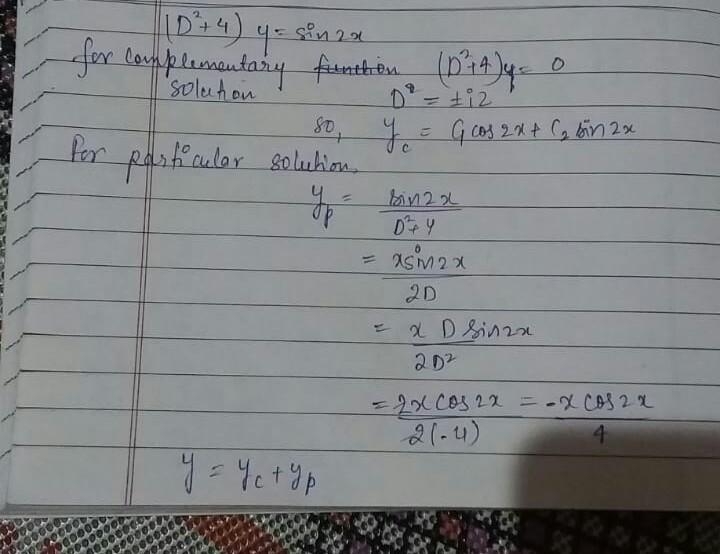 (D²+4) y = sin2x
for complementary function (D²+4)y = 0
solution D² = ±i2
so, y_c = C₁cos2x + C₂ sin2x
For particular solution,
y_p = sin2x / D²+4
= xsin2x / 2D
= x D sin2x / 2D²
= 2x cos2x / 2(-4) = -x cos2x / 4
y = y_c + y_p